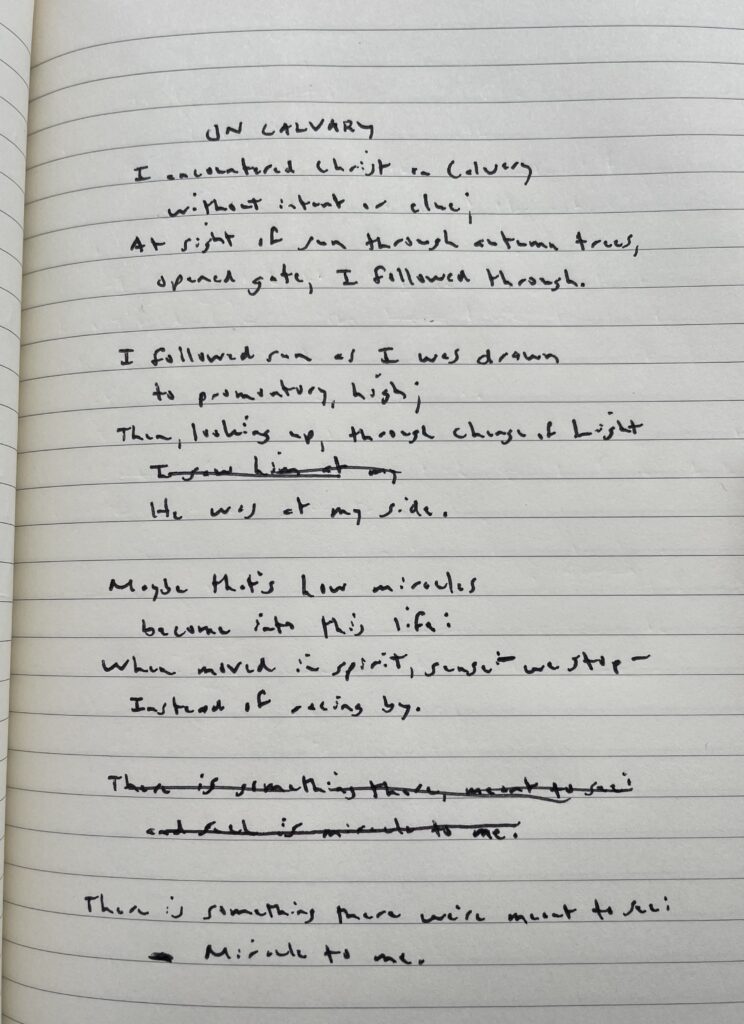 ON CALVARY
I encountered Christ on Calvary
without intent or clue;
At sight of sun through autumn trees,
opened gate, I followed through.
I followed sun as I was drawn
to promontory, high;
Then, looking up, through change of Light
I saw him at my
He was at my side.
Maybe that's how miracles
become into this life:
When moved in spirit, sense – we stop –
Instead of racing by.
There is something there, meant to see:
and such is miracle to me.
There is something there we're meant to see:
Miracle to me.